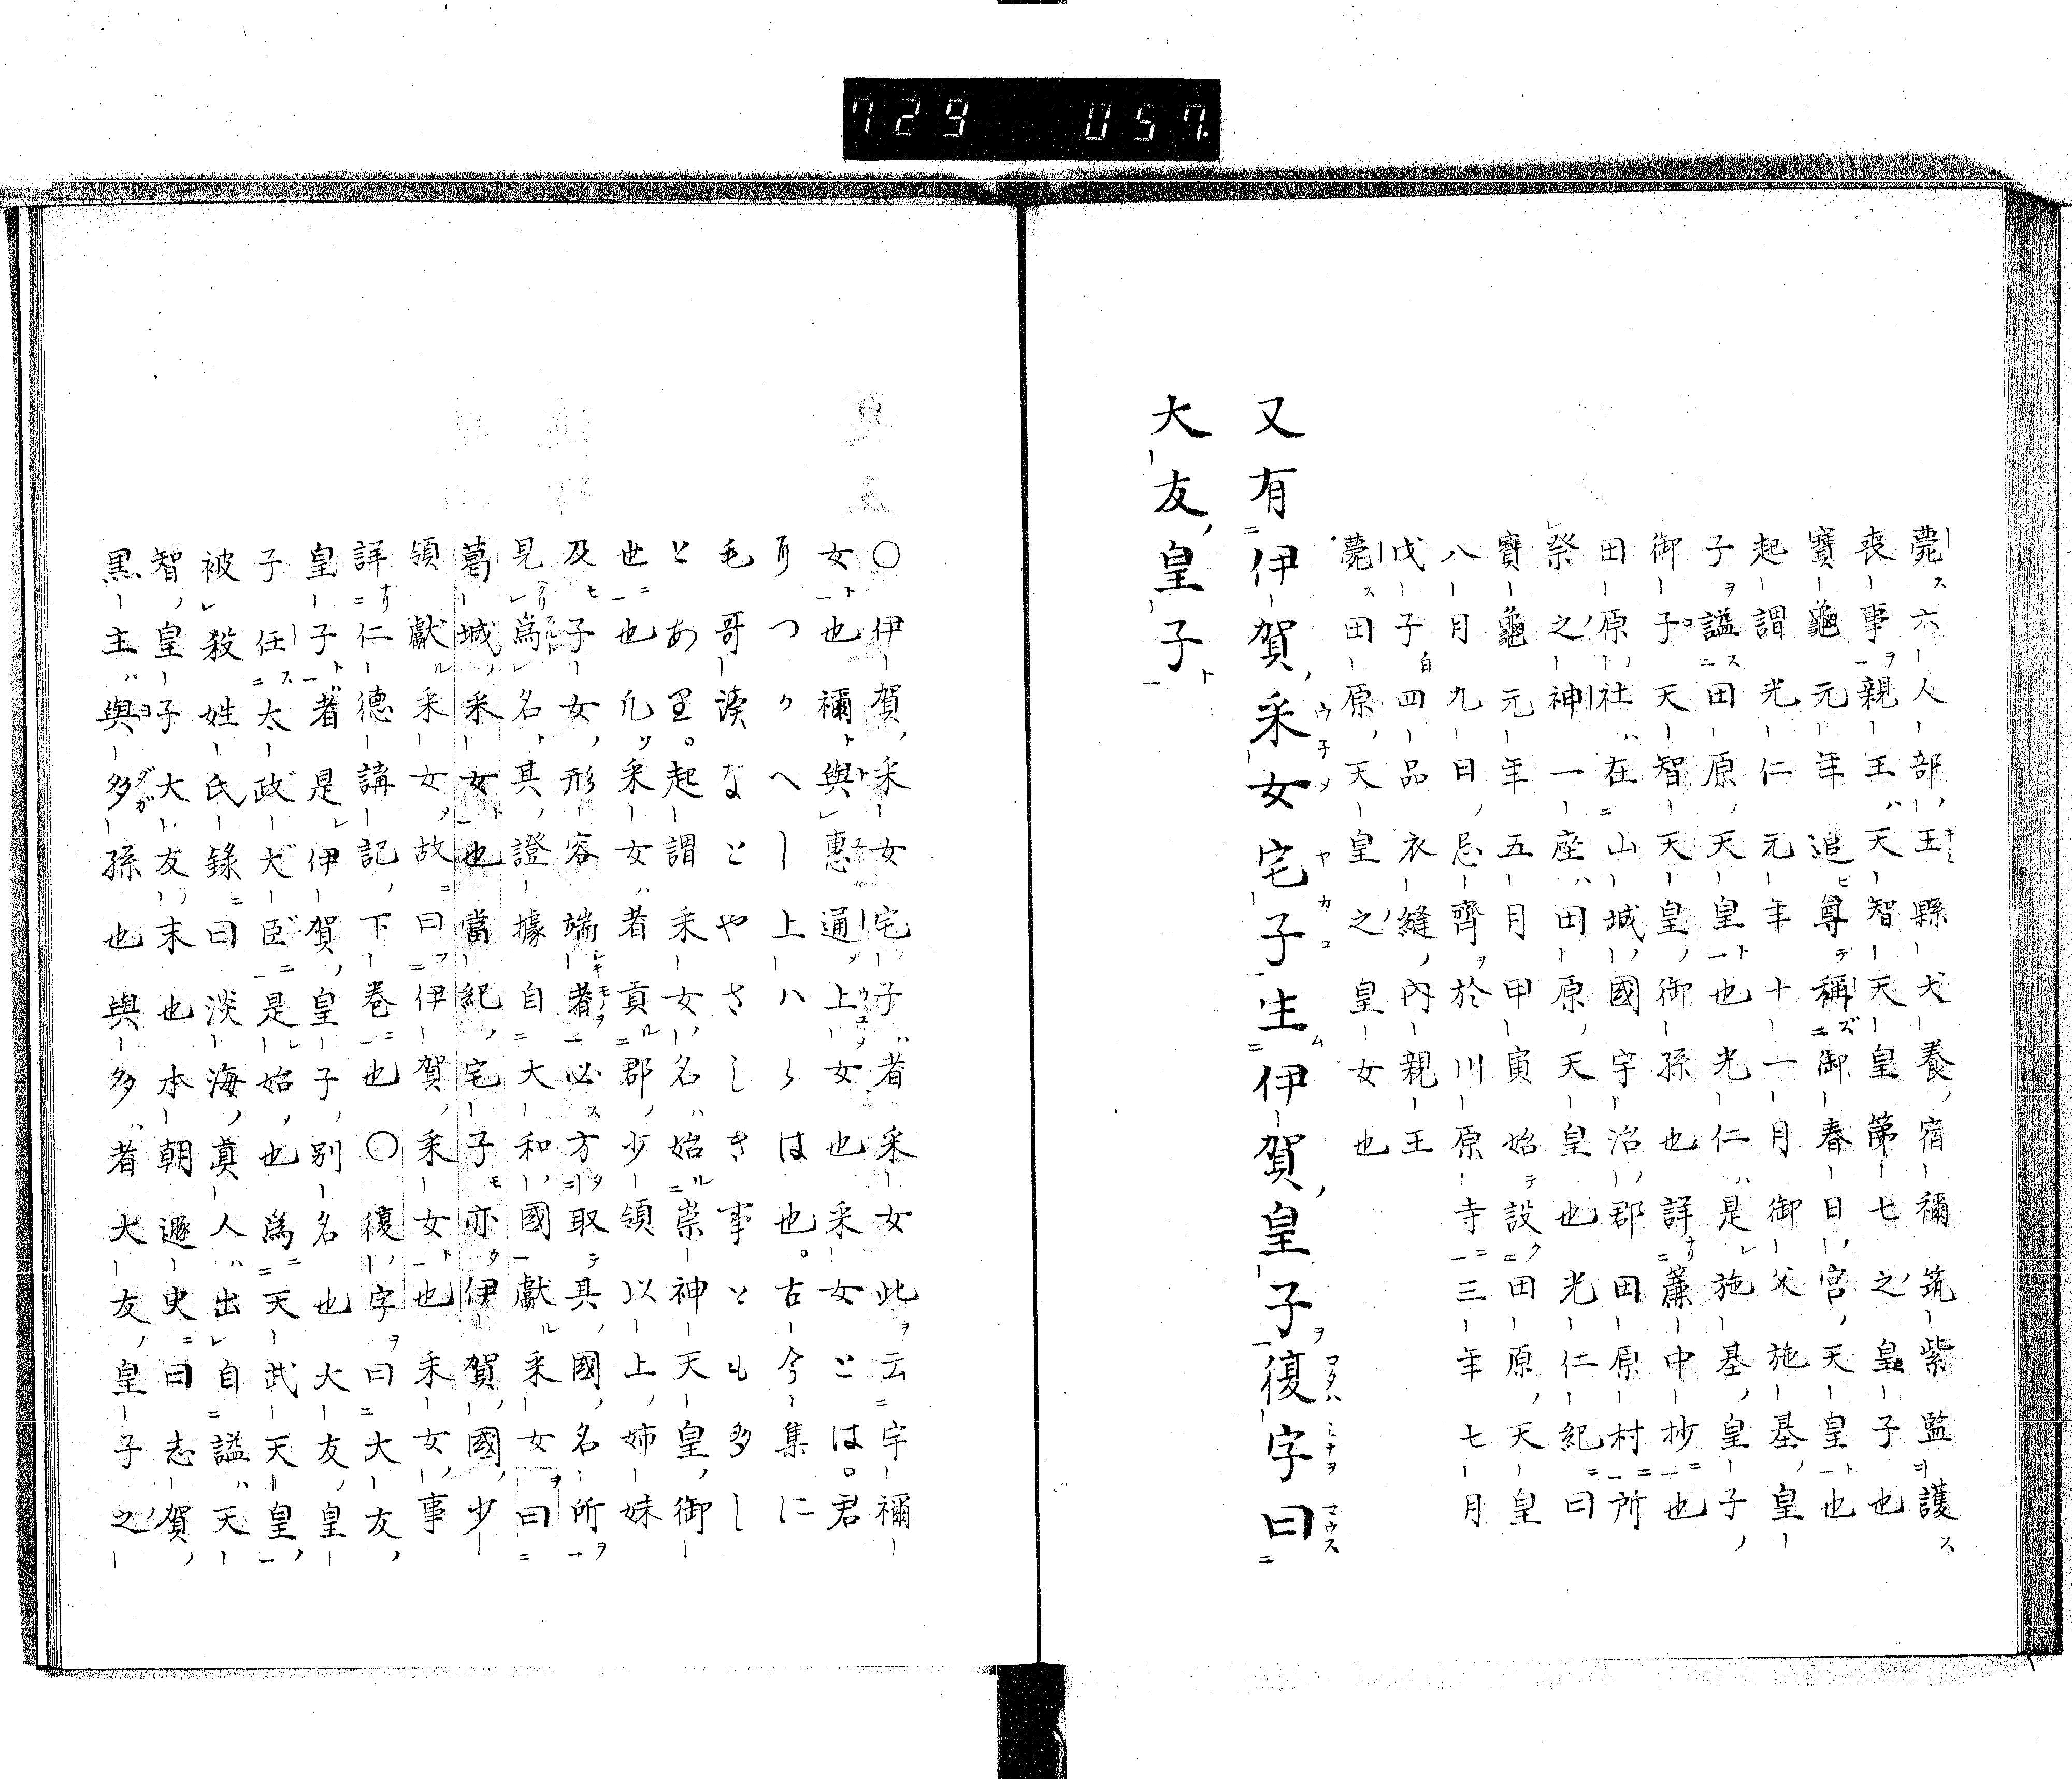 729 057
薨六人部王縣犬養宿禰筑紫監護
喪事親王天智天皇第七之皇子也
寶龜元年追尊稱御春日宮天皇也
起謂光仁元年十一月御父施基皇
子謚田原天皇也光仁是施基皇子
御子天智天皇御孫也詳簾中抄也
田原社在山城國宇治郡田原村所
祭之神一座田原天皇也光仁紀曰
寶龜元年五月甲寅始設田原天皇
八月九日忌齊於川原寺三年七月
戊子四品衣縫內親王
薨田原天皇之皇女也
又有伊賀采女宅子生伊賀皇子復字曰
大友皇子
○伊賀采女宅子者采女此云宇禰
女也禰與惠通上女也采女とは君
りつかへし上ハらは也古今集に
毛哥讀なとやさしき事とも多し
とあり起謂采女名始崇神天皇御
世也凡采女者貢郡少領以上姉妹
及子女形容端者必方取其國名所
見爲名其證據自大和國獻采女曰
葛城采女也當紀宅子亦伊賀國少
領獻采女故曰伊賀采女也采女事
詳仁德講記下卷也○復字曰大友
皇子者是伊賀皇子別名也大友皇
子任太政大臣是始也爲天武天皇
被殺姓氏錄曰淡海眞人出自謚天
智皇子大友末也本朝遯史曰志賀
黒主與多孫也與多者大友皇子之